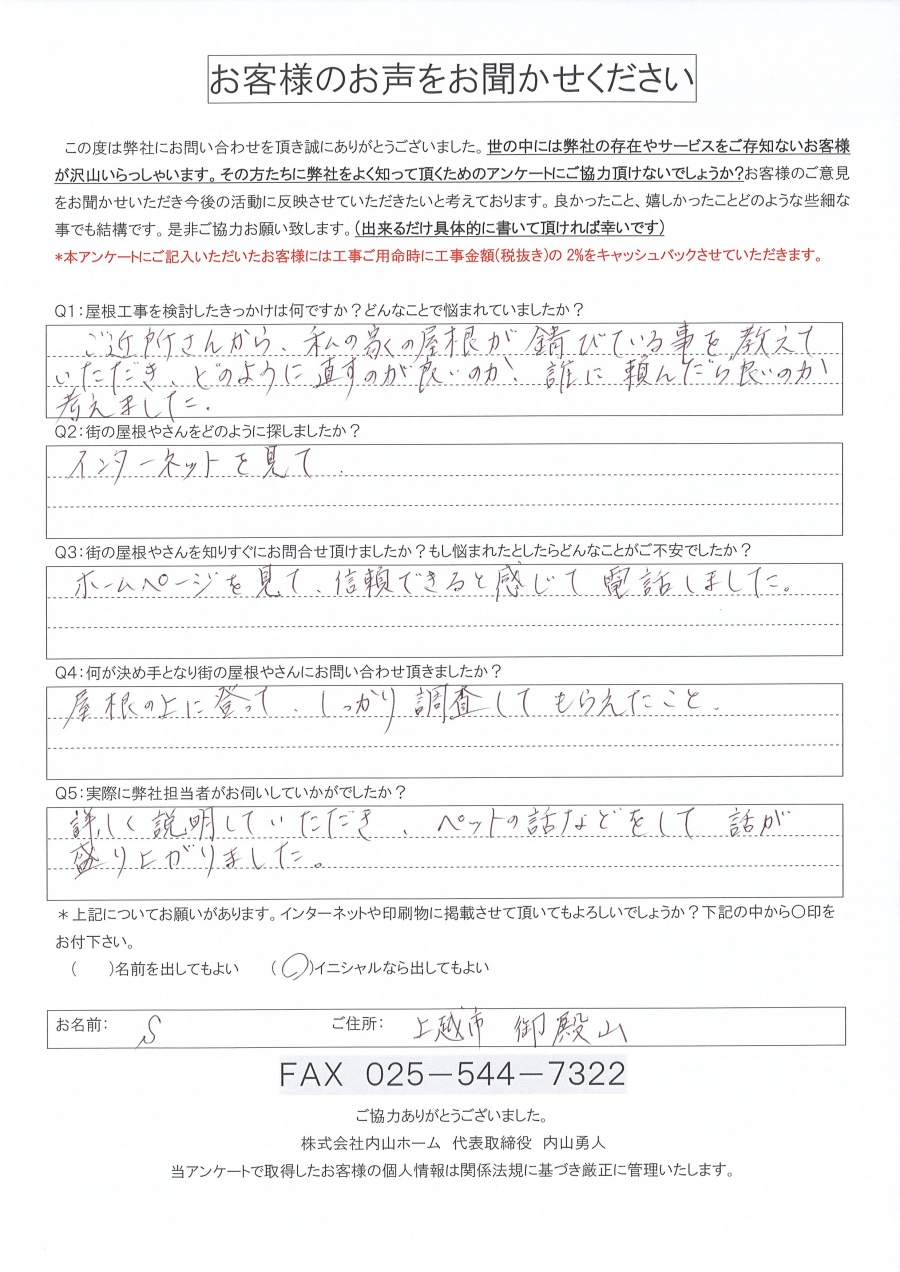 お客様のお声をお聞かせください
この度は弊社にお問い合わせを頂き誠にありがとうございました。世の中には弊社の存在やサービスをご存知ないお客様
が沢山いらっしゃいます。その方たちに弊社をよく知って頂くためのアンケートにご協力頂けないでしょうか?お客様のご意見
をお聞かせいただき今後の活動に反映させていただきたいと考えております。良かったこと、嬉しかったことどのような些細な
事でも結構です。是非ご協力お願い致します。(出来るだけ具体的に書いて頂ければ幸いです)
*本アンケートにご記入いただいたお客様には工事ご用命時に工事金額(税抜き)の 2%をキャッシュバックさせていただきます。
Q1:屋根工事を検討したきっかけは何ですか?どんなことで悩まれていましたか?
ご近所さんから、私の家の屋根が錆びている事を教えて
いただき、どのように直すのが良いのか、誰に頼んだら良いのか
考えました.
Q2:街の屋根やさんをどのように探しましたか?
インターネットを見て.
Q3:街の屋根やさんを知りすぐにお問合せ頂けましたか?もし悩まれたとしたらどんなことがご不安でしたか?
ホームページを見て、信頼できると感じて電話しました。
Q4:何が決め手となり街の屋根やさんにお問い合わせ頂きましたか?
屋根の上に登って、しっかり調査してもらえたこと.
Q5:実際に弊社担当者がお伺いしていかがでしたか?
詳しく説明していただき、ペットの話などをして 話が
盛り上がりました。
*上記についてお願いがあります。インターネットや印刷物に掲載させて頂いてもよろしいでしょうか?下記の中から〇印を
お付下さい。
(　　)名前を出してもよい　(〇)イニシャルなら出してもよい
お名前: S　ご住所: 上越市 御殿山
FAX 025-544-7322
ご協力ありがとうございました。
株式会社内山ホーム 代表取締役 内山勇人
当アンケートで取得したお客様の個人情報は関係法規に基づき厳正に管理いたします。